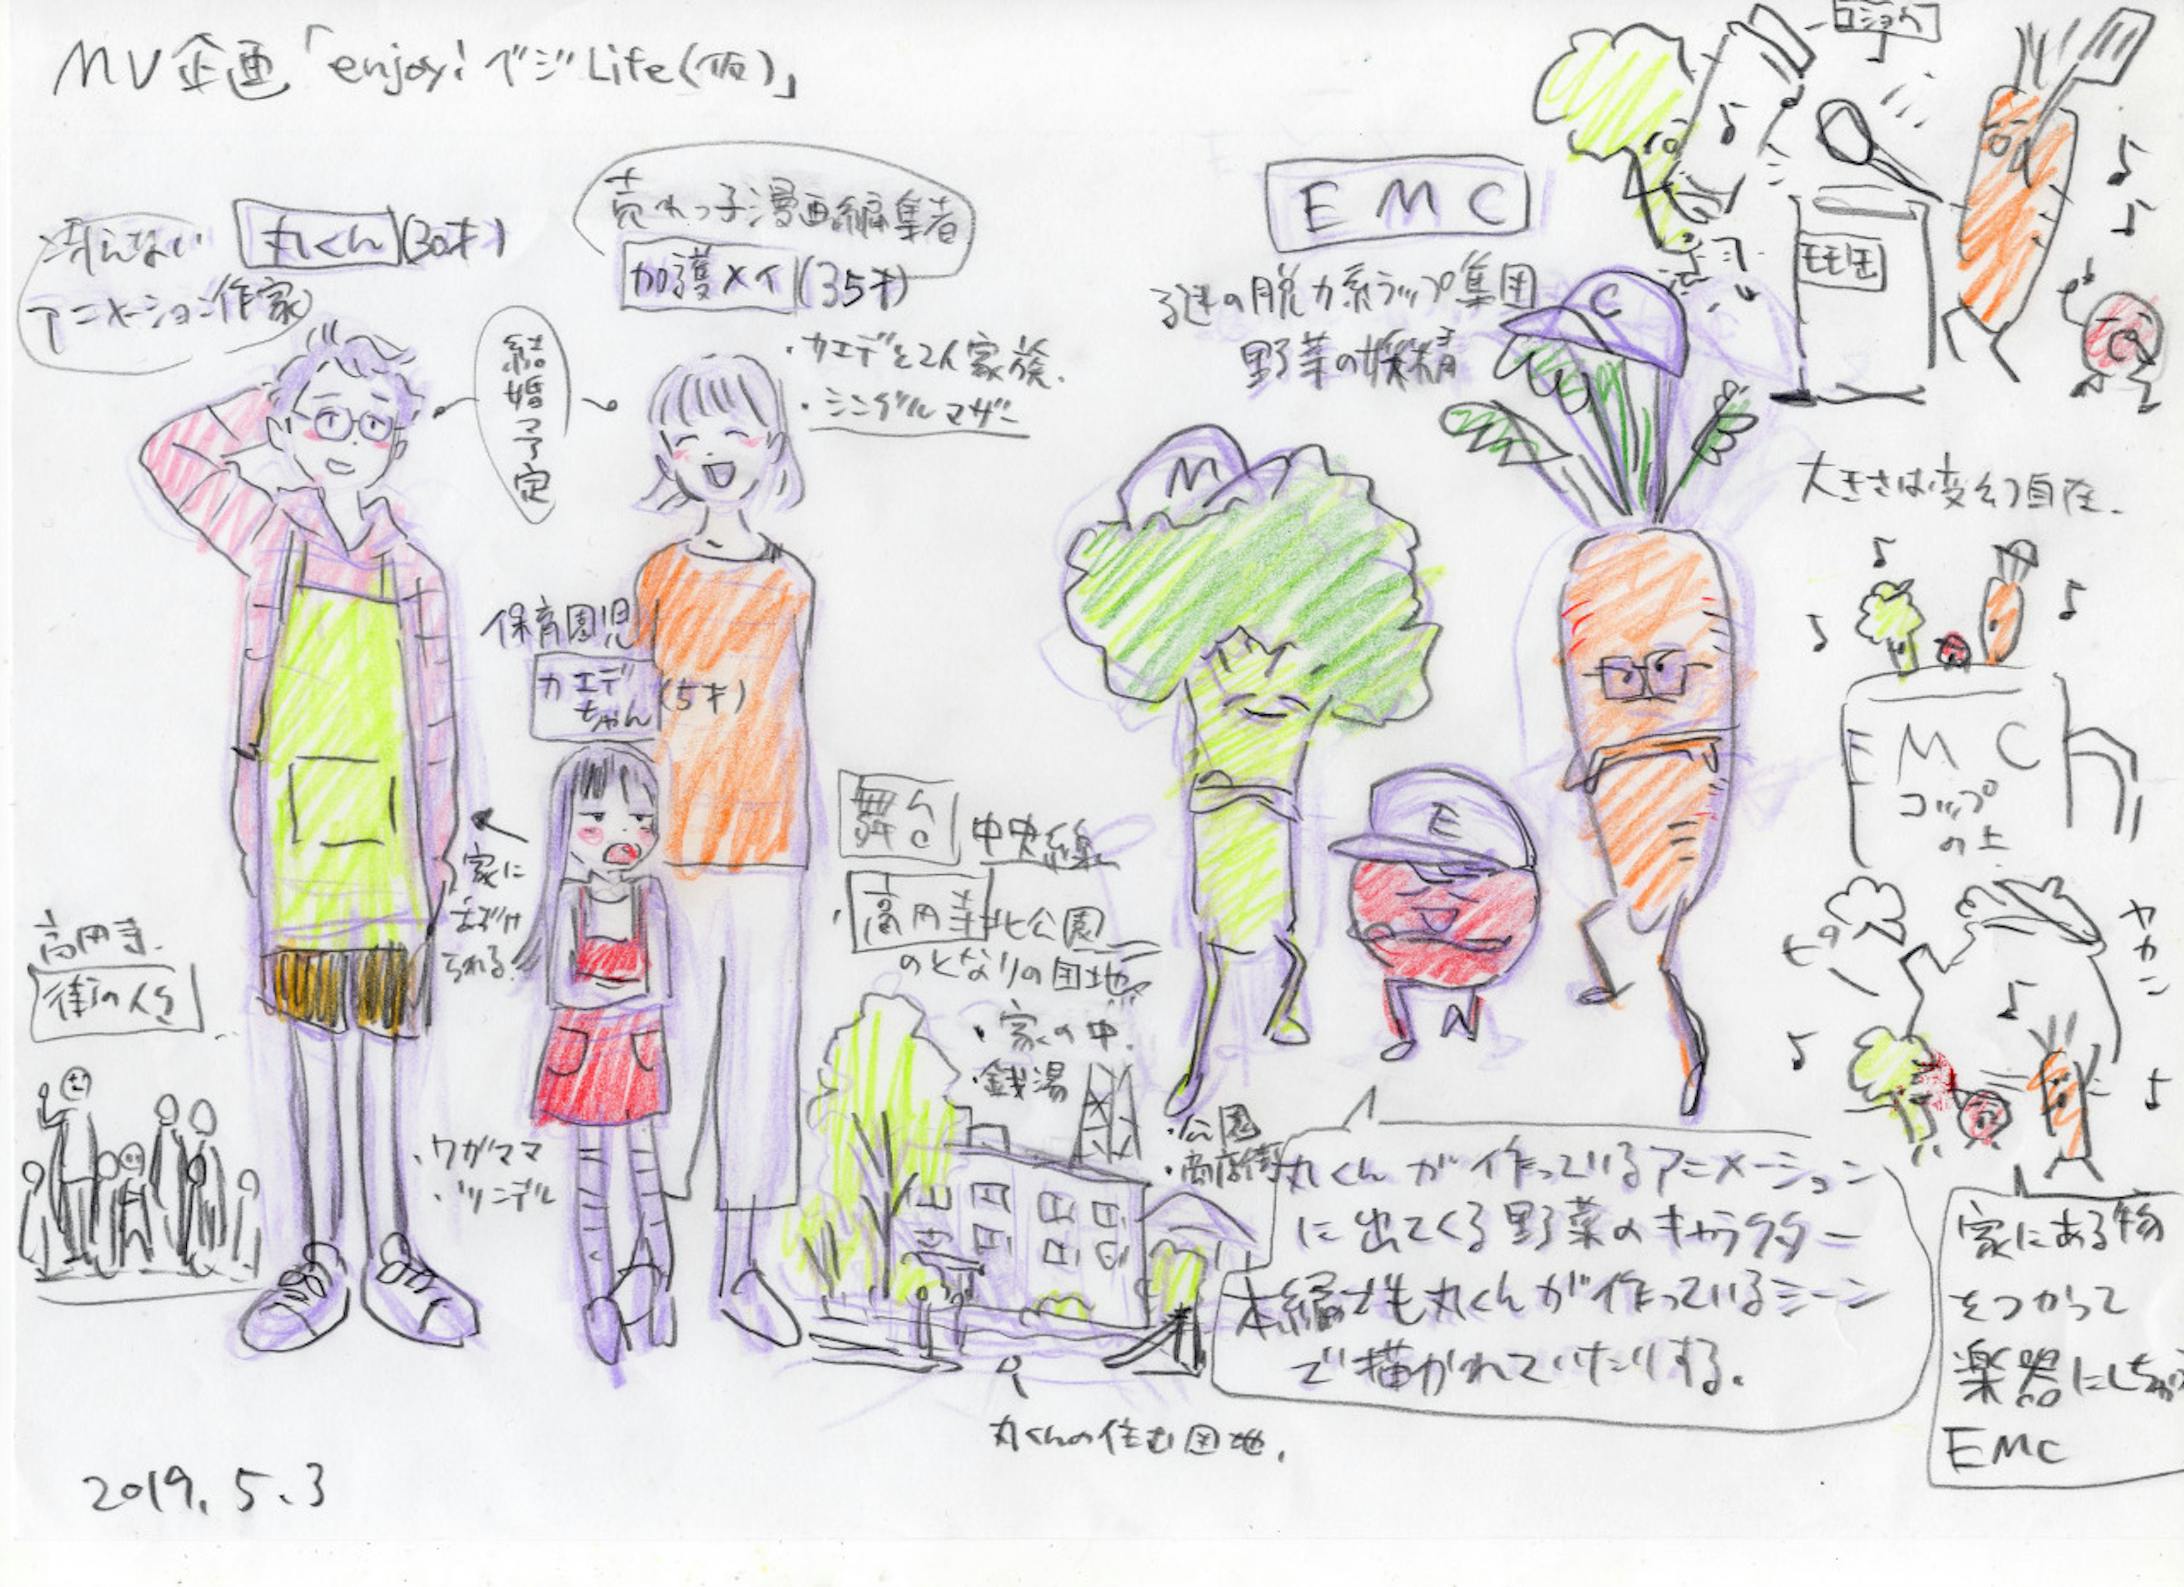 MV企画「enjoy!ベジLife(仮)」
冴えない
アニメーション作家
丸くん(30才)
売れっ子漫画編集者
加護メイ(35才)
・カエデと2人家族.
・シングルマザー
結婚予定
保育園児
カエデ
ちゃん(5才)
家に
られる.
・ワガママ
・ツンデレ
高円寺.
街の人々
舞台
中央線
・高円寺北公園
のとなりの団地
・家の中.
・銭湯
・公園
・商店街
丸くんの住む団地.
EMC
謎の脱力系ラップ集団
野菜の妖精
M
C
E
丸くんが作っているアニメーション
に出てくる野菜のキャラクター
本編でも丸くんが作っているシーン
で描かれていたりする.
コショウ
大きさは変幻自在.
EMC
コップ
の上
ヤカン
家にある物
をつかって
EMC
2019.5.3